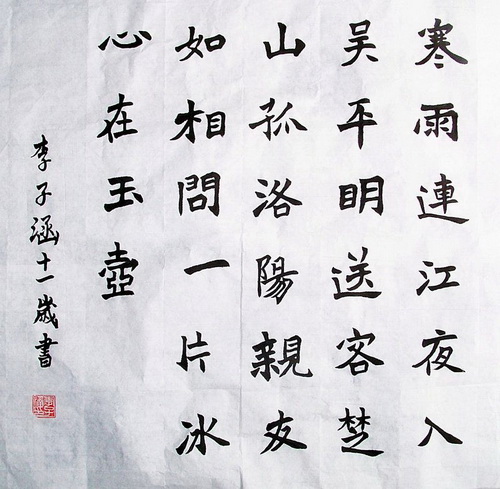 寒雨連江夜入
吳平明送客楚
山孤洛陽親友
如相問一片冰
心在玉壺
李子涵十一歲書